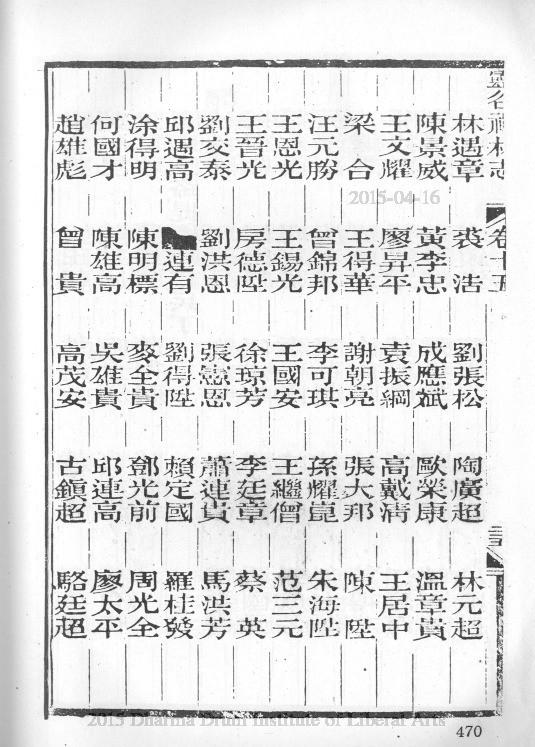 靈谷禪林志 卷十五
林遇章 裘浩 劉張松 陶廣超 林元超
陳景威 黃李忠 成應斌 歐榮康 溫章貴
王文耀 廖昇平 袁振綱 高戴清 王居中
梁合 王得華 謝朝亮 張大邦 陳陞
汪元勝 曾錦邦 李可琪 孫耀崑 朱海陞
王恩光 王錫光 王國安 王繼僧 范三元
王晉光 房德陞 徐琼芳 李廷章 蔡英
劉交泰 劉洪恩 張憲恩 蕭連貴 馬洪芳
邱遇高 連有 劉得陞 賴定國 羅桂發
涂得明 陳明標 麥全貴 鄧光前 周光全
何國才 陳雄高 吳雄貴 邱連高 廖太平
趙雄彪 曾貴 高茂安 古鎮超 駱廷超
2015-04-16
2015 Dharma Drum Institute of Liberal Arts
470